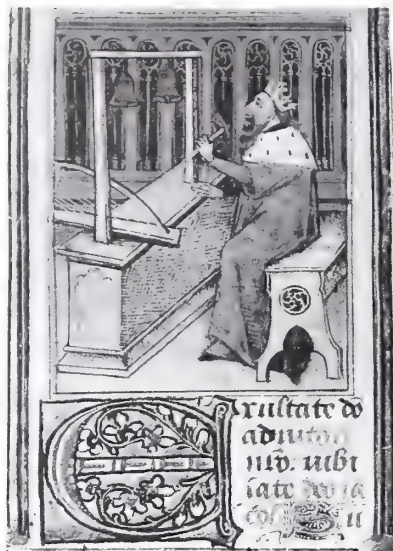 Exultate do
adiuto
nr̄o. iubi
late deo ia
cob